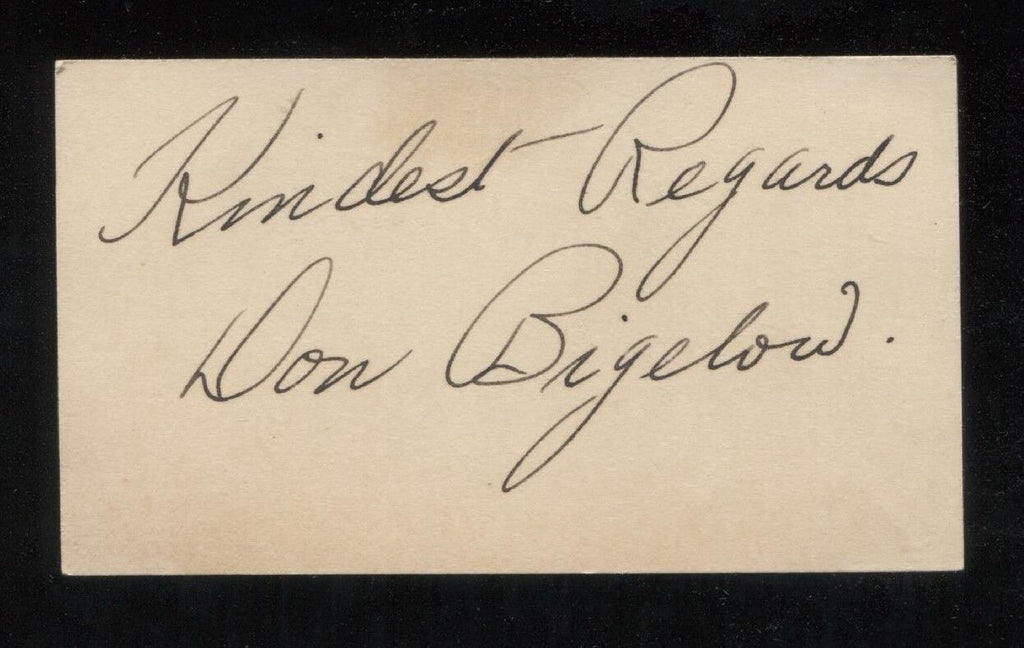 Kindest Regards
Don Bigelow.